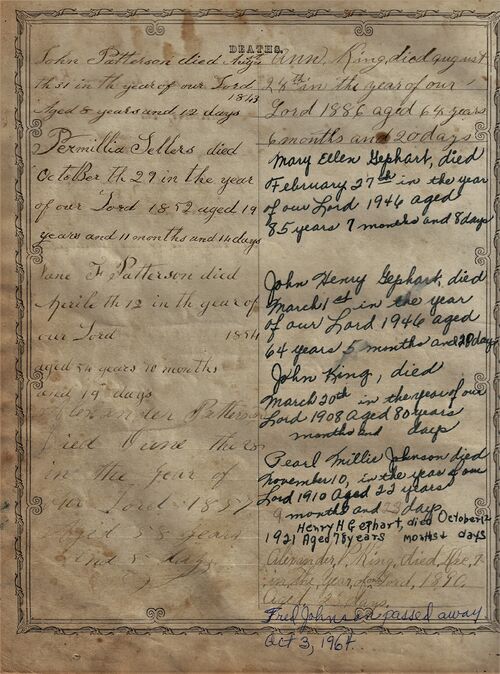 DEATHS.
John Patterson died
th 31 in the year of our Lord
1843
Aged 8 years and 12 days
Permillia Sellers died
October th 29 in the year
of our Lord 1852 aged 19
years and 11 months and 14 days
Jane F Patterson died
Aprile th 12 in th year of
our Lord 1854
aged 54 years 10 months
and 19 days
Alexander Patterson
Died June the
in the year of
our Lord 1857
aged years
and days
Ann King, died august
24th in the year of our
Lord 1886 aged 64 years
6 months and 20 days
Mary Ellen Gephart, died
February 27th in the year
of our Lord 1946 aged
85 years 7 months and 8 days
John Henry Gephart, died
March 1st in the year
of our Lord 1946 aged
64 years 5 months and days
John King, died
March 20th in the year of our
Lord 1908 Aged 80 years
months and days
Pearl Millie Johnson died
November 10, in the year of our
Lord 1910 Aged 22 years
9 months and days
Henry H Gephart, died October 12
1921 Aged 78 years months & days
Alexander P. King, died
in the year of Lord, 1870,
Fred Johnson passed away
Oct 3, 1964.